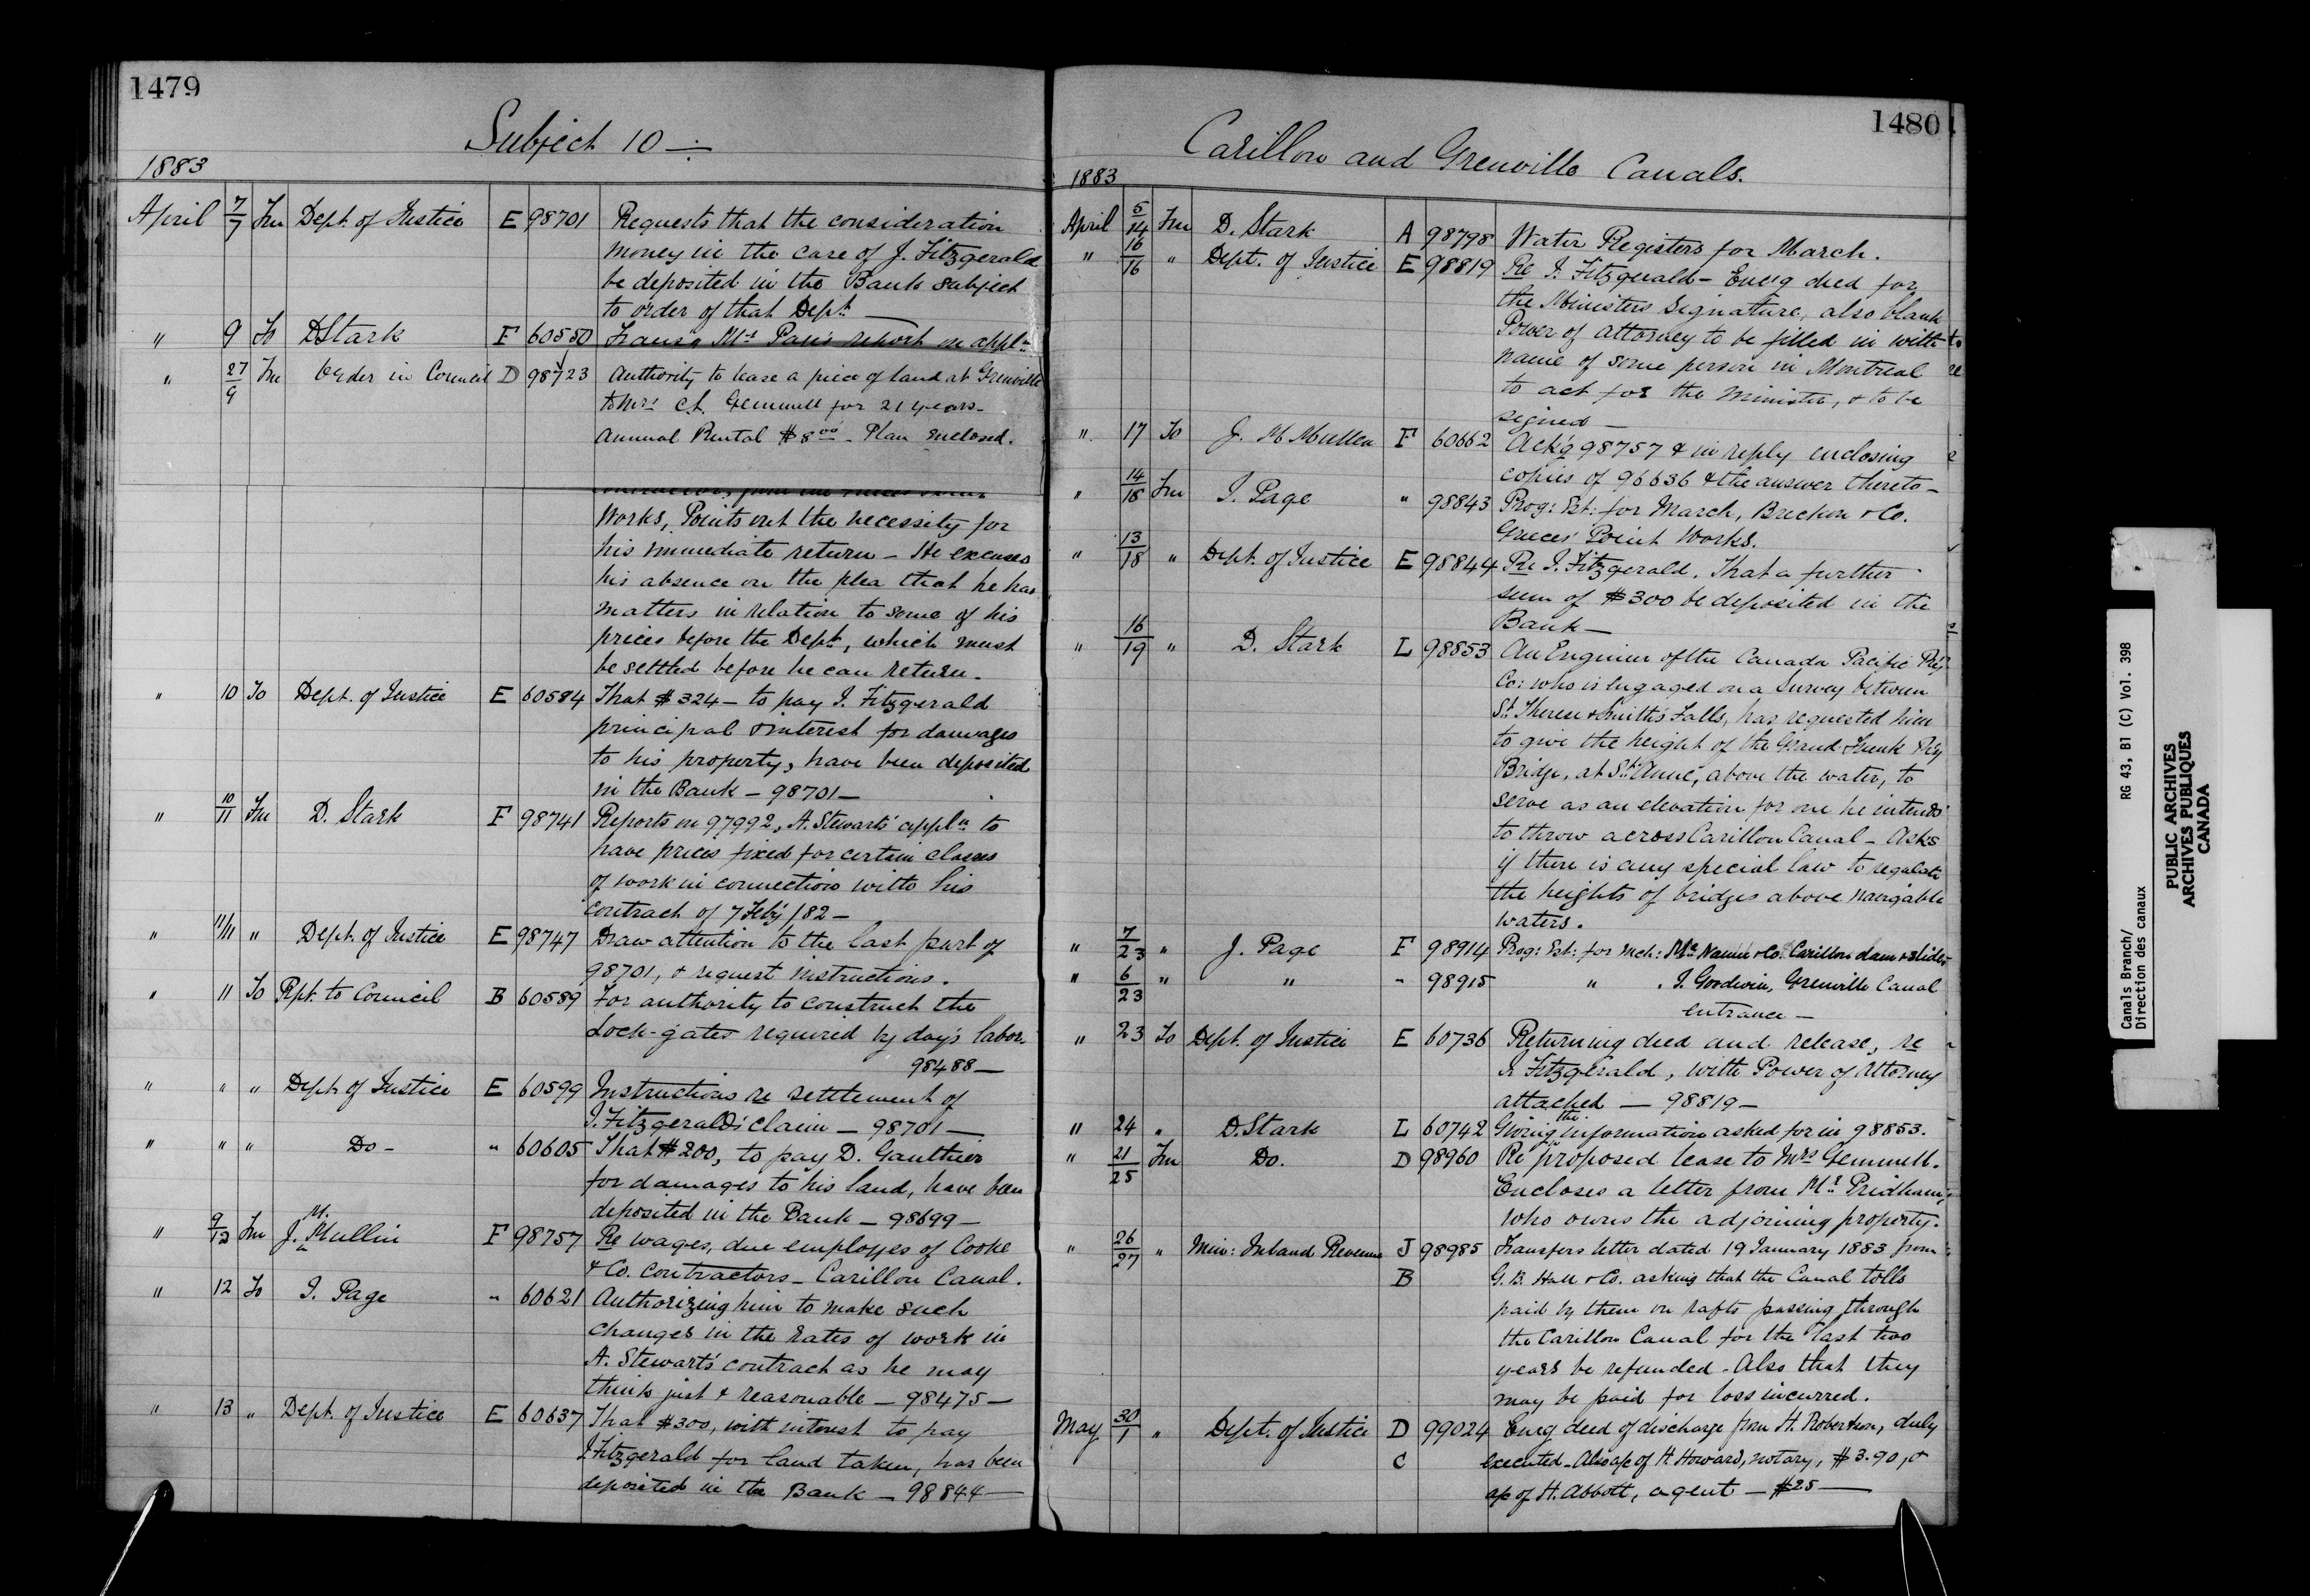 1479
Subject 10 —
1883
April 7/7 Fm Dept. of Justice E 98701 Requests that the consideration
money in the case of J. Fitzgerald
be deposited in the Bank subject
to order of that Dept. —
" 9 To D Stark F 60550 Transg Mr. Page's report on appln
" 27/9 Fm Order in Council D 98723 Authority to lease a piece of land at Grenville
to Mrs C.A. Gemmell for 21 years.
Annual Rental $8.00 - Plan enclosed.
Works, Points out the necessity for
his immediate return - He excuses
his absence on the plea that he has
matters in relation to some of his
prices before the Dept., which must
be settled before he can return.
" 10 To Dept. of Justice E 60584 That $324 - to pay J. Fitzgerald
principal & interest for damages
to his property, have been deposited
in the Bank - 98701 -
" 10/11 Fm D. Stark F 98741 Reports on 97992, A. Stewart's appln to
have prices fixed for certain classes
of work in connection with his
contract of 7 Feby /82 -
" 11/11 " Dept. of Justice E 98747 Draw attention to the last part of
98701, & request instructions.
" 11 To Rpt. to Council B 60589 For authority to construct the
Lock-gates required by day's labor.
98488 -
" " " Dept. of Justice E 60599 Instructions re settlement of
J. Fitzgerald's claim - 98701 -
" " " Do - " 60605 That $200, to pay D. Gauthier
for damages to his land, have been
deposited in the Bank - 98699 -
" 9/12 Fm J. McMullin F 98757 Re wages, due employes of Cooke
& Co. Contractors - Carillon Canal.
" 12 To J. Page " 60621 Authorizing him to make such
changes in the rates of work in
A. Stewart's contract as he may
think just & reasonable - 98475 -
" 13 " Dept. of Justice E 60637 That $300, with interest to pay
J Fitzgerald for land taken, has been
deposited in the Bank - 98844 -
1480
Carillon and Grenville Canals.
1883
April 5/14 Fm D. Stark A 98798 Water Registers for March.
" 16/16 " Dept. of Justice E 98819 Re J. Fitzgerald - Encg deed for
the Ministers Signature, also blank
Power of attorney to be filled in with
name of some person in Montreal
to act for the Minister, & to be
signed -
" 17 To J. McMullen F 60662 Ackg 98757 & in reply enclosing
copies of 96636 & the answer thereto -
" 14/18 Fm J. Page " 98843 Prog: Est: for March, Brecken & Co.
Greece's Point Works.
" 13/18 " Dept. of Justice E 98844 Re J. Fitzgerald. That a further
sum of $300 be deposited in the
Bank -
" 16/19 " D. Stark L 98853 An Engineer of the Canada Pacific Ry
Co: who is engaged on a Survey between
St. Therese & Smith's Falls, has requested him
to give the height of the Grand Trunk Ry
Bridge, at St. Anne, above the water, to
serve as an elevation for one he intends
to throw across Carillon Canal - Asks
if there is any special law to regulate
the heights of bridges above navigable
waters.
" 7/23 " J. Page F 98914 Prog: Est: for Mch: McNamee & Co. Carillon dam & slides
" 6/23 " " " 98915 " " J. Goodwin, Grenville Canal
entrance -
" 23 To Dept. of Justice E 60736 Returning deed and release, re
J. Fitzgerald, with Power of Attorney
attached - 98819 -
" 24 " D. Stark L 60742 Giving the information asked for in 98853.
" 21/25 Fm Do. D 98960 Re proposed lease to Mrs Gemmell.
Encloses a letter from Mr. Pridham,
who owns the adjoining property.
" 26/27 " Min: Inland Revenue J 98985 Transfers letter dated 19 January 1883 from
B G. B. Hall & Co. asking that the Canal tolls
paid by them on rafts passing through
the Carillon Canal for the last two
years be refunded - Also that they
may be paid for loss incurred.
May 30/1 " Dept. of Justice D 99024 Encg deed of discharge from H. Robertson, duly
C executed - Also a/c of H. Howard, notary, $3.90, &
a/c of H. Abbott, agent - $25 -
Canals Branch/
Direction des canaux
RG 43, B1 (C) Vol. 398
PUBLIC ARCHIVES
ARCHIVES PUBLIQUES
CANADA